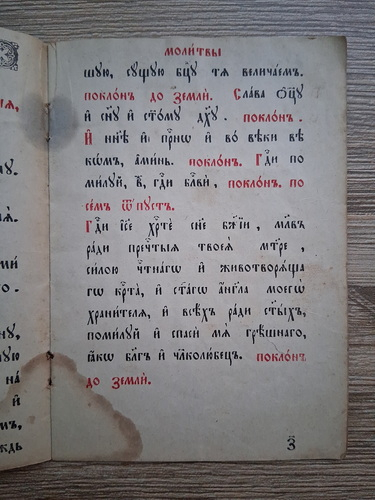 моли́твы
шꙋю, сꙋщꙋю бцⷣꙋ тѧ̀ велича́емъ.
покло́нъ до землѝ. Сла́ва ѻ҆ц҃ꙋ
и҆ сн҃ꙋ и҆ ст҃о́мꙋ дх҃ꙋ. покло́нъ.
И҆ нн҃ѣ и҆ при́снѡ и҆ во вѣ́ки вѣ
кѡ́мъ, а҆ми́нь. покло́нъ. Гдⷭ҇и по
ми́лꙋй, в҃, гдⷭ҇и блг҇вѝ, покло́нъ. по
се́мъ ѿпꙋстъ.
Гдⷭ҇и і҆се хрⷭ҇тѐ сн҃е бж҃їи, мл҃въ
ра́ди пречⷭ҇тыѧ твоеѧ̀ мт҃ре,
си́лою чⷭ҇тна́гѡ и҆ животворѧ́ща
гѡ крⷭ҇та̀, и҆ ст҃а́гѡ а҆́нг҃ла моегѡ̀
храни́телѧ, и҆ всѣ́хъ ра́ди ст҃ы́хъ,
поми́лꙋй и҆ спаси́ мѧ грѣ́шнаго,
ꙗ҆́кѡ бл҃гъ и҆ чл҃колю́бецъ. покло́нъ
до землѝ.
з҃